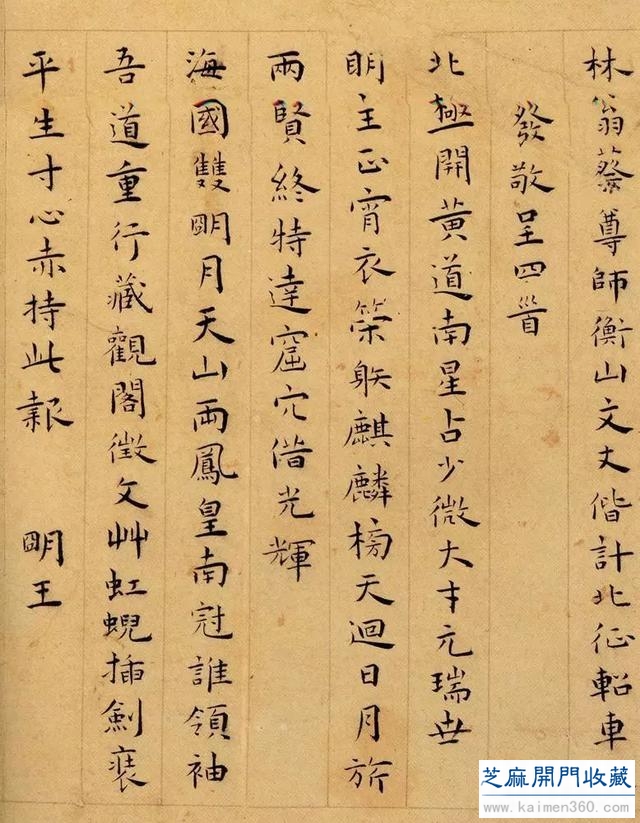 林翁蔡尊師衡山文丈偕計北征軺車
發敬呈四首
北極開黃道南星占少微大才元瑞世
明主正宵衣策䠶麒麟榜天迴日月旂
兩賢終特達窟穴偕光輝
海國雙明月天山兩鳳皇南冠誰領袖
吾道重行藏觀閣徵文艸虹蜺插劍裝
平生寸心赤持此報 明王
芝麻開門收藏
www.kaimen360.com